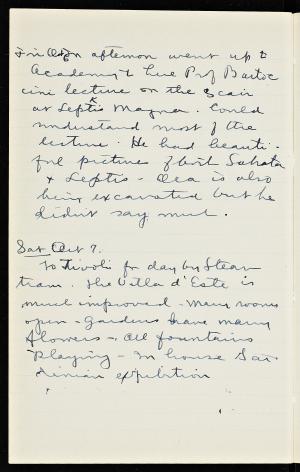 Fri Oct 6 afternoon went up to
Academy to hear Prof Bartoc
cini lecture on the scavi
at Leptis Magna. Could
understand most of the
lecture. He had beauti-
ful pictures of both Sabrata
& Leptis - Oea is also
being excavated but he
didn't say much.
Sat Oct 7.
To Tivoli for day by steam
tram. The Villa d'Este is
much improved - Many rooms
open - Gardens have many
flowers - All fountains
playing - In house Sar-
dinian exhibition